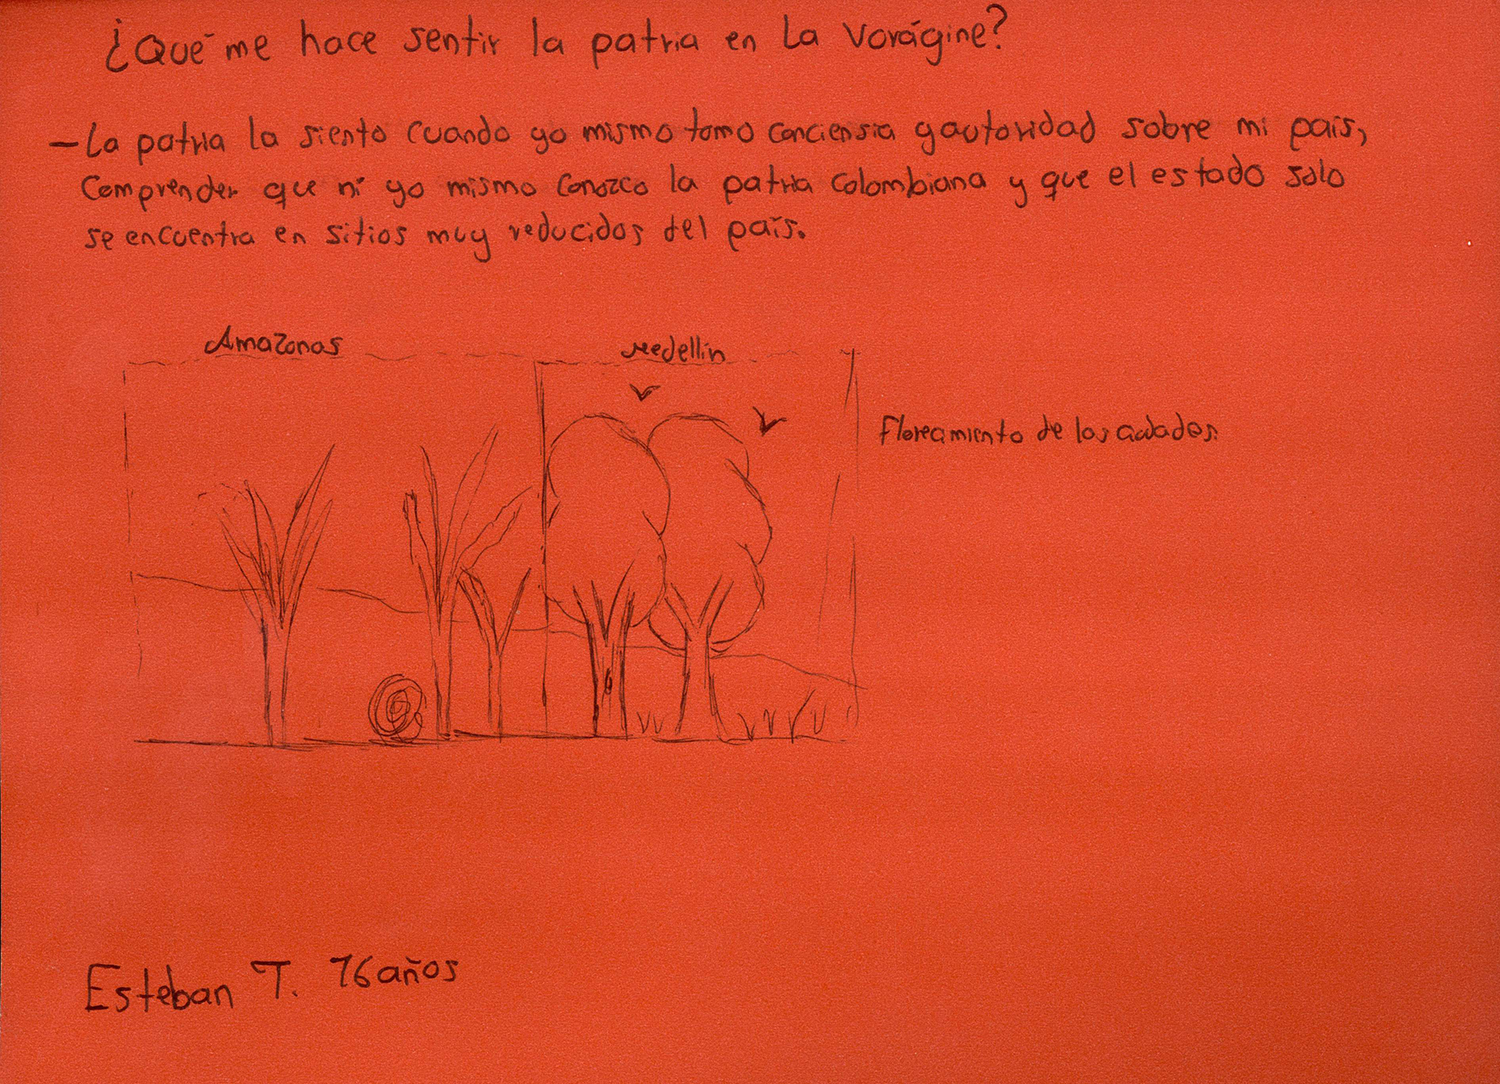 ¿Qué me hace sentir la patria en La Vorágine?
- La patria la siento cuando yo mismo tomo conciensia y autoridad sobre mi país,
comprender que ni yo mismo conozco la patria colombiana y que el estado solo
se encuentra en sitios muy reducidos del país.
Amazonas
Medellín
Floreamiento de los
Esteban T. 16 años